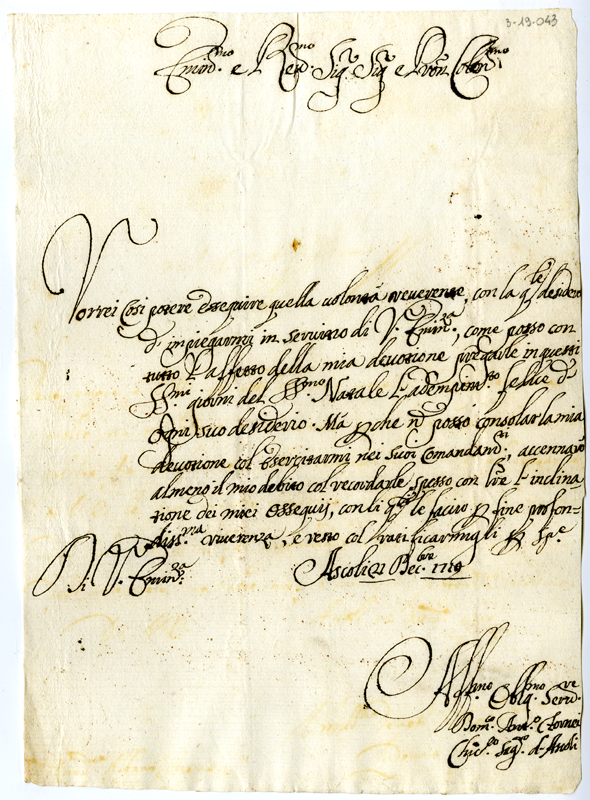 3-19-043
Emin.mo e Re.mo Sig. Sig. e Pron. Colen.mo
Vorrei Così potere esseguire quella uolontà reuerente, con la q.le desidero
d' impiegarmi in seruitio di V. Emin.za, come posso con
tutto l' affetto della mia deuotione pregarle in questi
SS.mi giorni del SS.mo Natale l' adempim.to felice d'
ogni suo desiderio. Mà p che nò posso consolar la mia
deuotione col essercitarmi nei suoi Comandam.ti, accennarò
almeno il mio debito col recordarle spesso con l're l' inclina
tione dei miei ossequij, con li q.li le faccio p fine profon=
diss.ma riuerenza, e resto col ratificarmigli p sp.e
Di V. Emin.za Ascoli 21 Dec.bre 1719
Aff.mo Oblig.mo Seru.re
Dom.o Ant.o
d' Ascoli